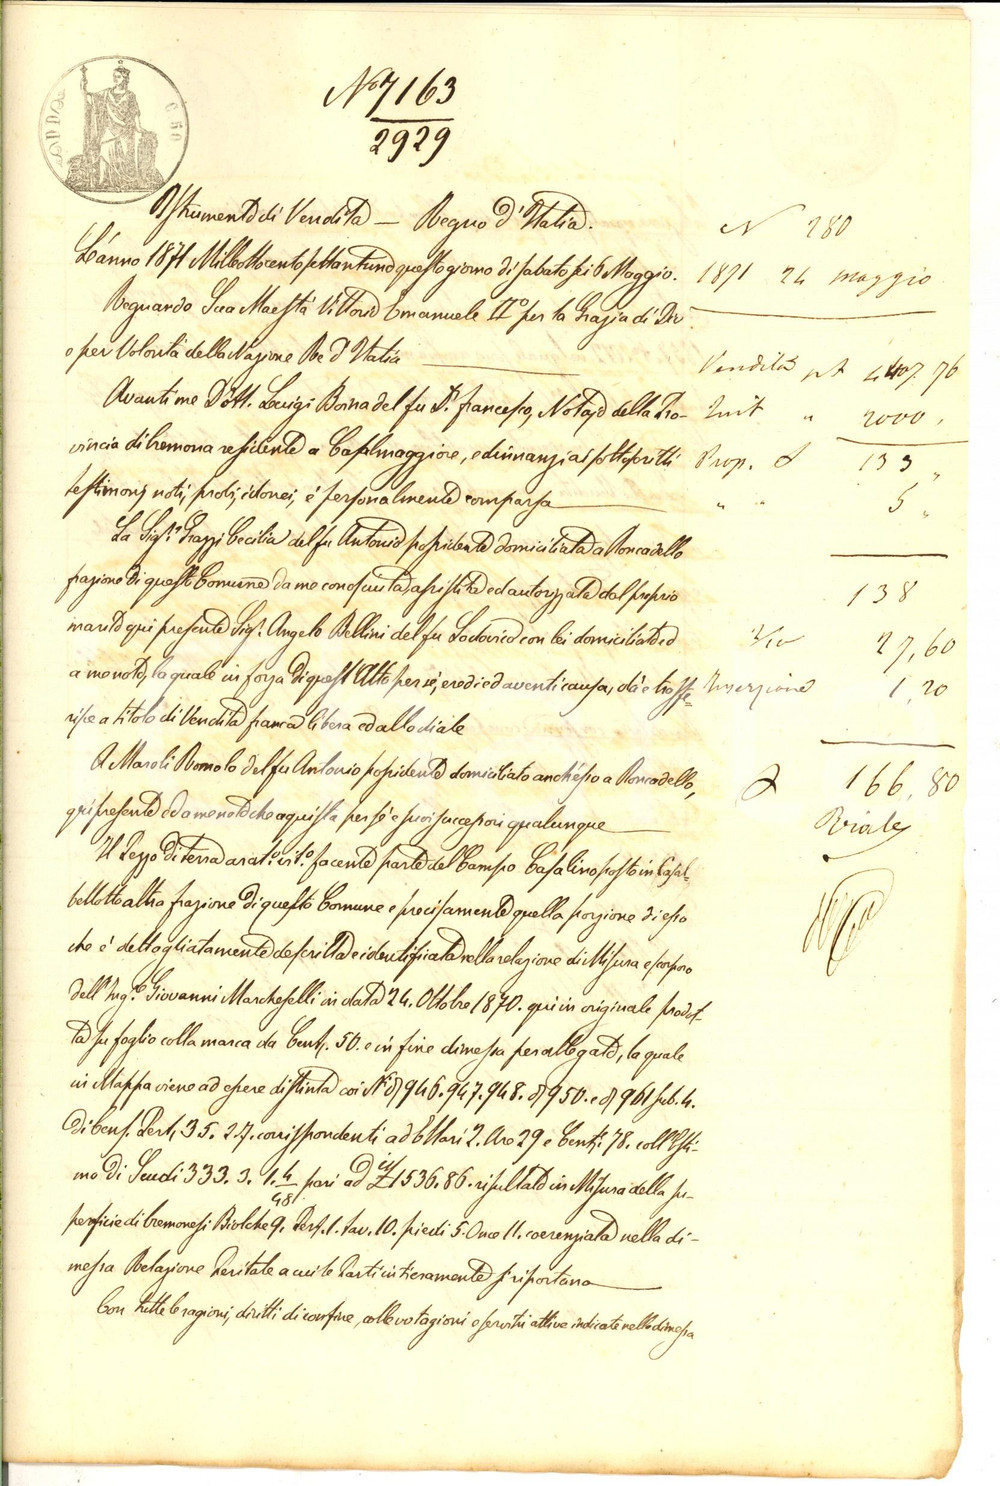 No 7163
2929
Istrumento di Vendita — Regno d'Italia.
L'anno 1871 Milleottocentosettantuno questo giorno di sabato sei 6 Maggio.
Regnando Sua Maestà Vittorio Emanuele II° per la Grazia di Dio
e per Volontà della Nazione Re d'Italia
Avanti me Dott. Luigi Borna del fu Dr. Francesco, Notajo della Pro-
vincia di Cremona residente a Casalmaggiore, ed innanzi ai sottoscritti
testimonj noti, probi, idonei, é personalmente comparsa
La Sigra Grazzi Cecilia del fu Antonio possidente domiciliata a Roncadello
frazione di questo Comune da me conosciuta assistita ed autorizzata dal proprio
marito qui presente Sigr. Angelo Bellini del fu Lodovico con lei domiciliato ed
a me noto, la quale in forza di quest'Atto per sé, eredi ed aventi causa, dà e trasfe-
risce a titolo di Vendita franca libera ed allodiale
A Maroli Romolo del fu Antonio possidente domiciliato anch'esso a Roncadello,
qui presente ed a me noto che acquista per sé e suoi successori qualunque
Il Pezzo di terra arato. vito. facente parte del Campo Casalino posto in Casal-
bellotto altra frazione di questo Comune e precisamente quella porzione di esso
che é dettagliatamente descritta e identificata nella relazione di Misura e scorporo
dell'Inge. Giovanni Marcheselli in data 24. Ottobre 1870. qui in originale prodot-
ta su foglio colla marca da Cent. 50. e in fine dimessa per allegato, la quale
in Mappa viene ad essere distinta coi Ni. 946. 947. 948. 950. e 961 sub. 4.
di Cens. Pert. 35. 27. corrispondenti ad Ettari 2. Are 29 e Centi. 78. coll'Esti-
mo di Scudi 333. 3. 1. 4/48 pari ad it £ 1536. 86. risultato in Misura della su-
perficie di Cremonesi Biolche 9. Pert. 1. tav. 10. piedi 5. Once 11. coerenziata nella di-
messa Relazione Peritale a cui le Parti intieramente si riportano
Con tutte le ragioni, diritti di confine, colle votazioni e servitù attive indicate nella dimessa
N 280
1871 24 maggio
Vendita 4407. 76
Quit " 2000.
Prop. 133 "
" " 5 "
138
2/10 27,60
Inserzione 1,20
166,80